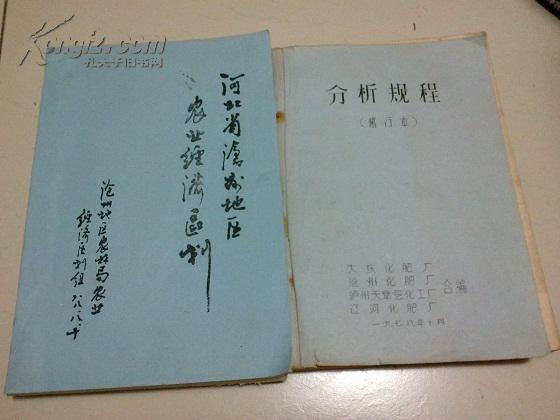 Kongfz.com
孔夫子旧书网
河北省滄州地区
农业经济區划
沧州地区农林局农业
经济区划组
分析规程
(暂行本)
大庆化肥厂
沧州化肥厂
泸州天然气化工厂
辽河化肥厂
合编
一九七八年十月